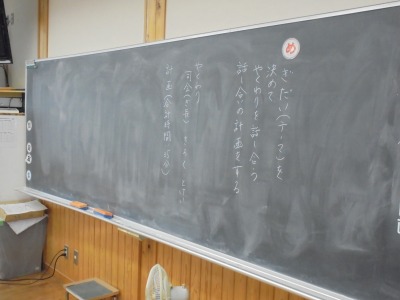 め
ぎだい(テーマ)を
決めて
やくわりを話し合う
話し合いの計画をする
やくわり
司会(2名) きろく
計画(合計時間 45分)